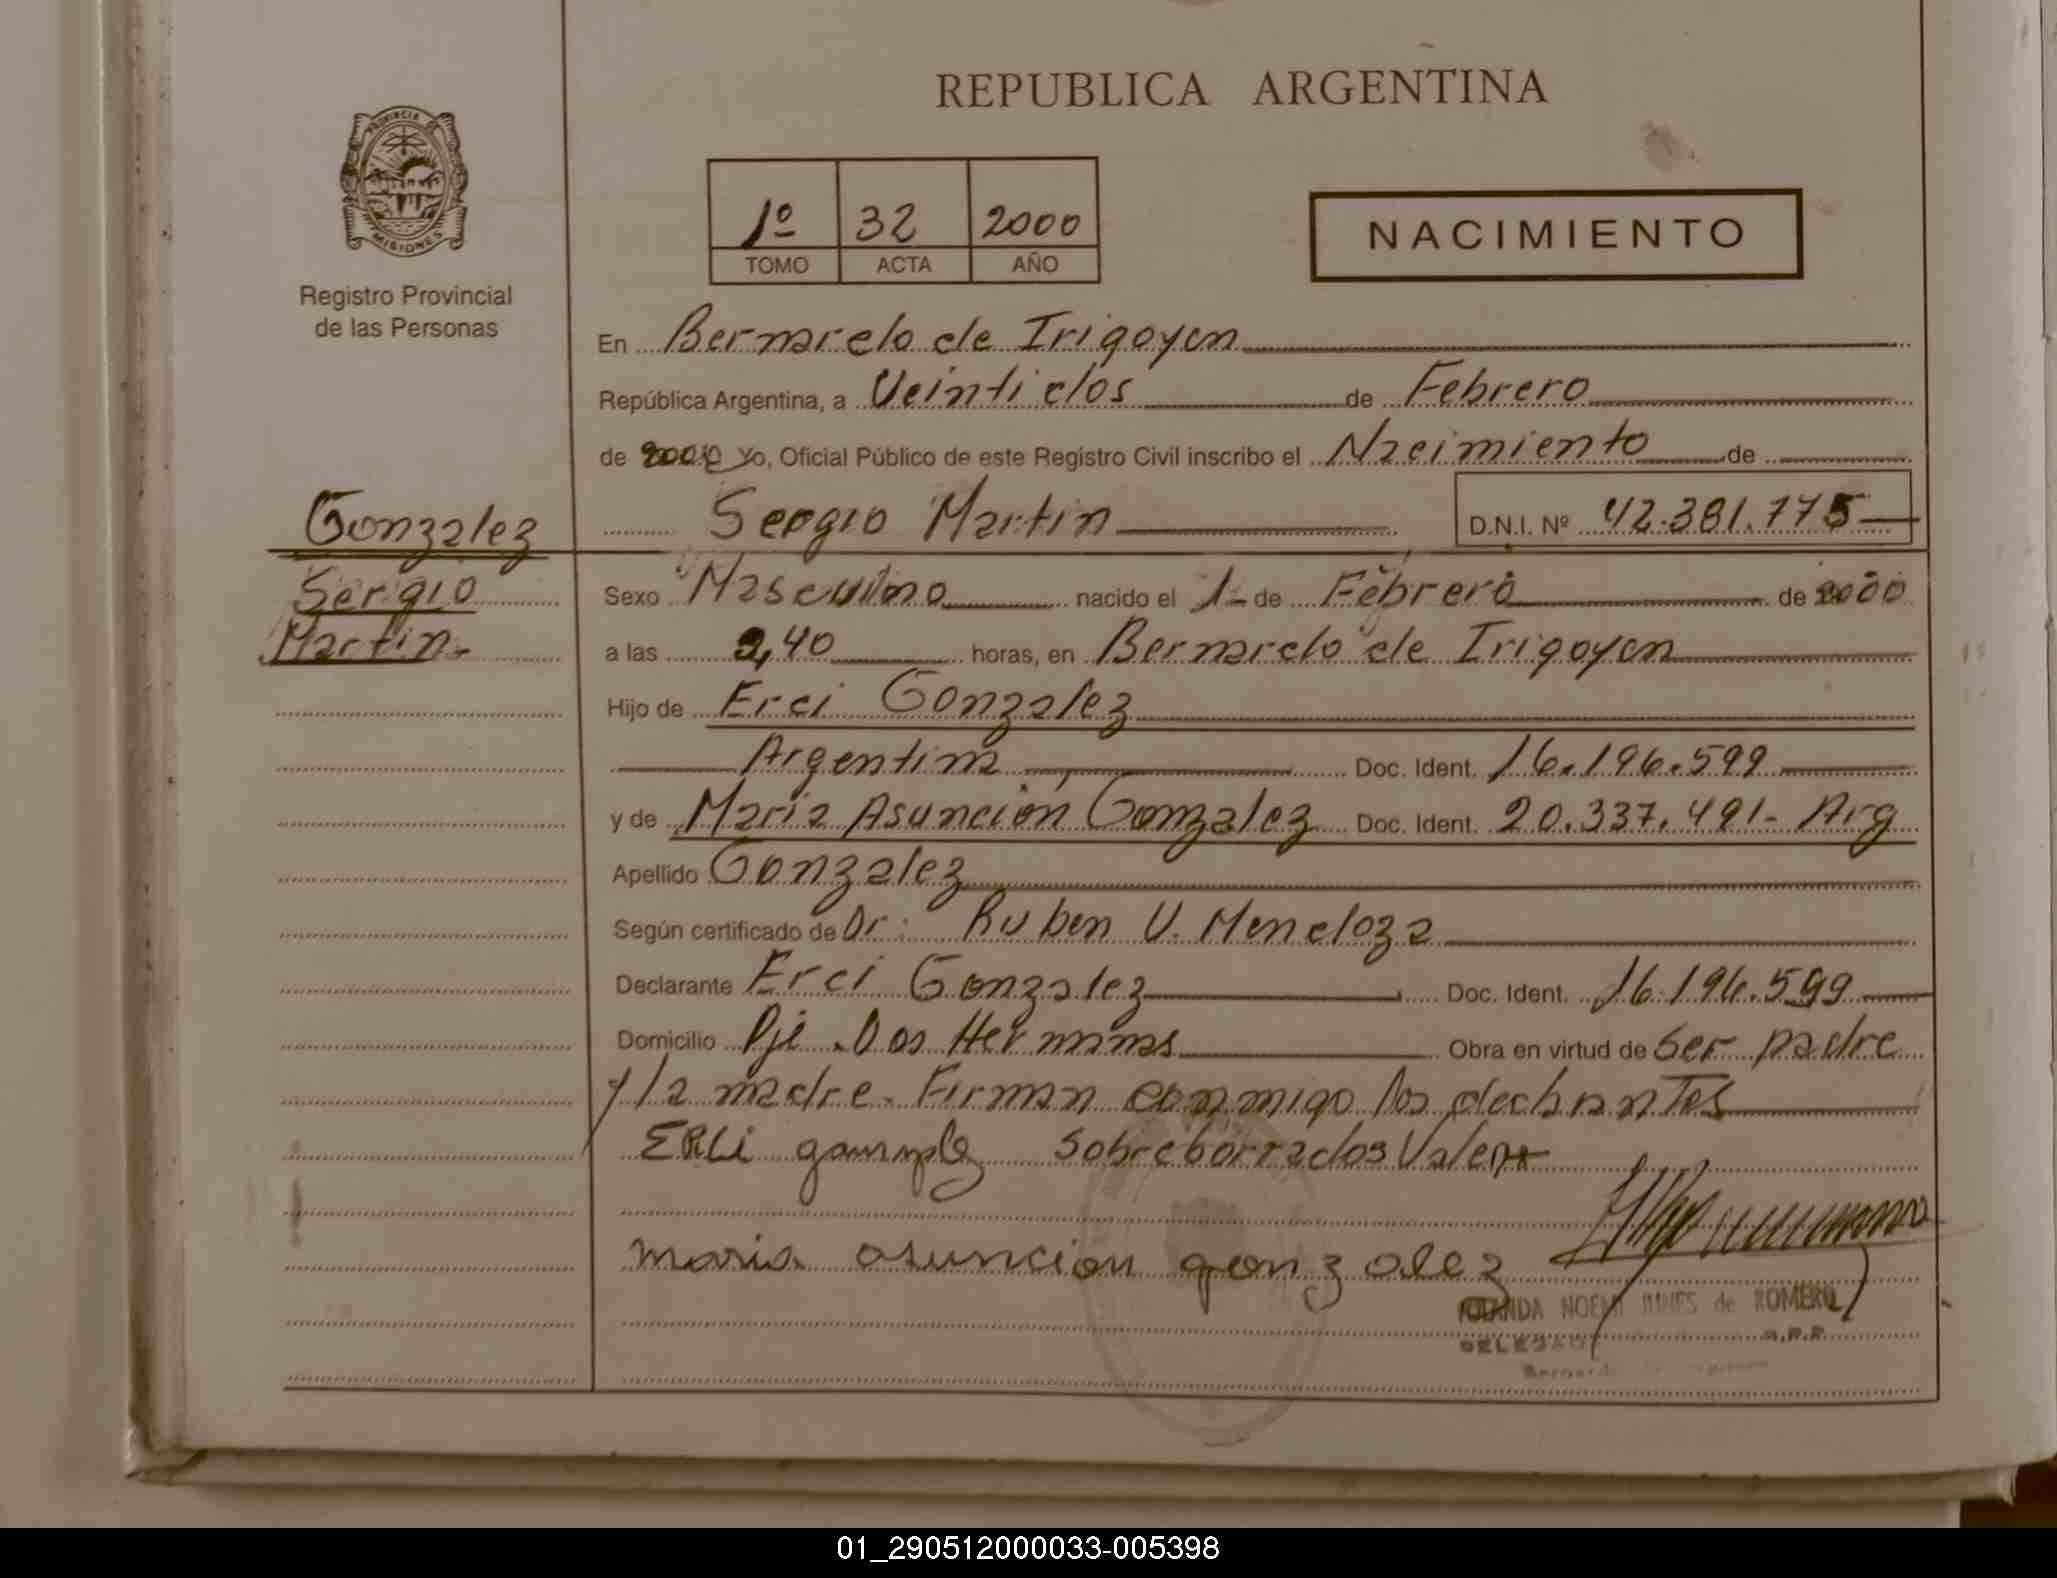 REPUBLICA ARGENTINA
PROVINCIA DE
MISIONES
Registro Provincial
de las Personas
1º 32 2000
TOMO ACTA AÑO
NACIMIENTO
En Bernardo de Irigoyen
República Argentina, a Veinti dos de Febrero
de 2000 Yo, Oficial Público de este Registro Civil inscribo el Nacimiento de
Gonzalez
Sergio Martin D.N.I. Nº 42.381.775
Sergio
Martin-
Sexo Masculino nacido el 1- de Febrero de 2000
a las 2,40 horas, en Bernardo de Irigoyen
Hijo de Erci Gonzalez
Argentina Doc. Ident. 16.196.599
y de Maria Asunción Gonzalez Doc. Ident. 20.337.491- Arg
Apellido Gonzalez
Según certificado de Dr: Ruben V. Mendoza
Declarante Erci Gonzalez Doc. Ident. 16.196.599
Domicilio Pje. Dos Hermanas Obra en virtud de Ser padre
y la madre. Firman conmigo los declarantes
ERCi Sobreborrados Valen
maria asuncion gonzalez
NOEMI de ROMERO
DELEGADA R.P.P.
01_290512000033-005398